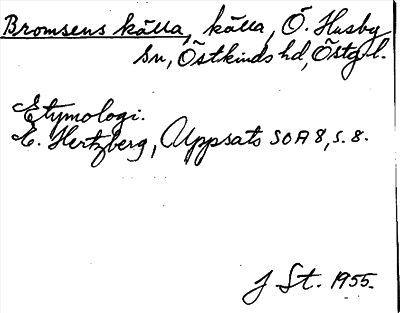 Bromsens källa, källa, Ö. Husby
sn, Östkinds hd, Östg.l.
Etymologi.
E. Hertzberg, Uppsats SOA 8, s. 8.
J St. 1955.